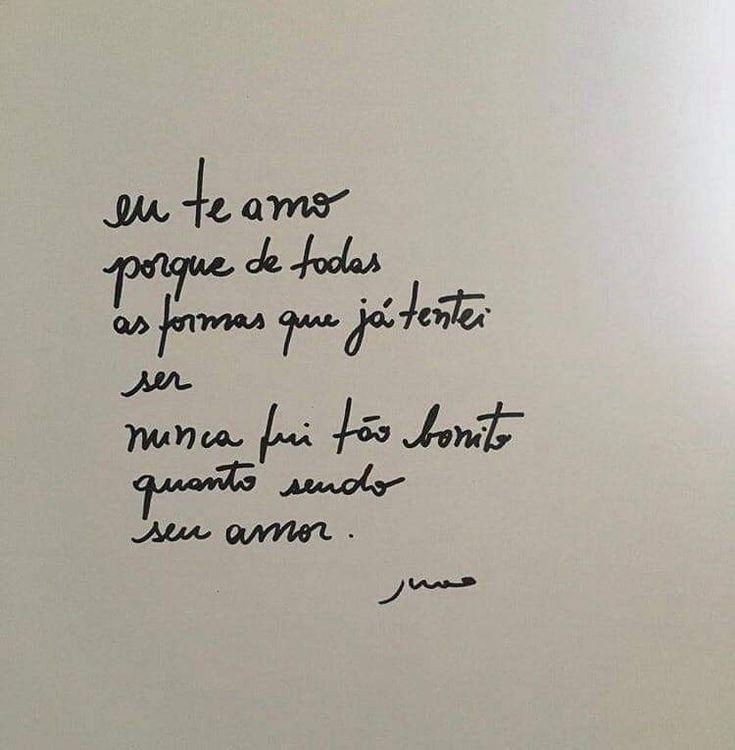 eu te amo
porque de todas
as formas que já tentei
ser
nunca fui tão bonito
quanto sendo
seu amor.